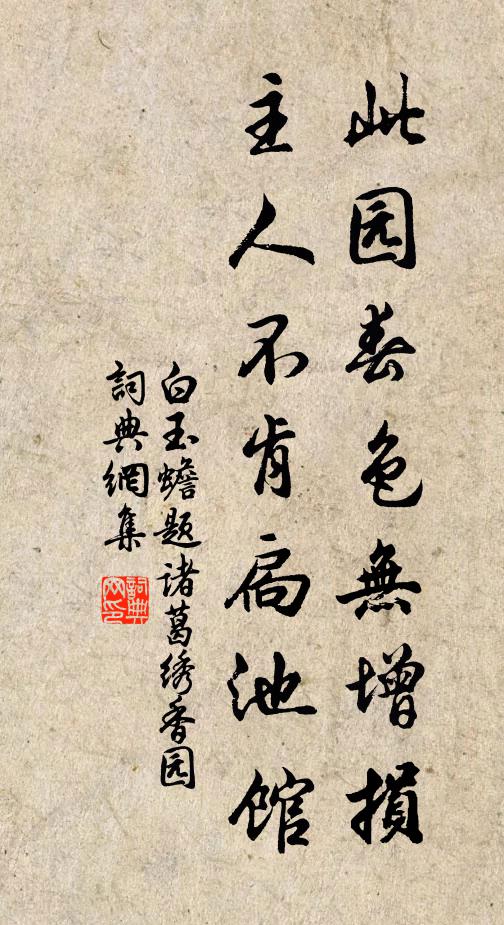 此园春色無增損
主人不肯扃池馆
白玉蟾题诸葛绣香园
詞典網集
詞典网印